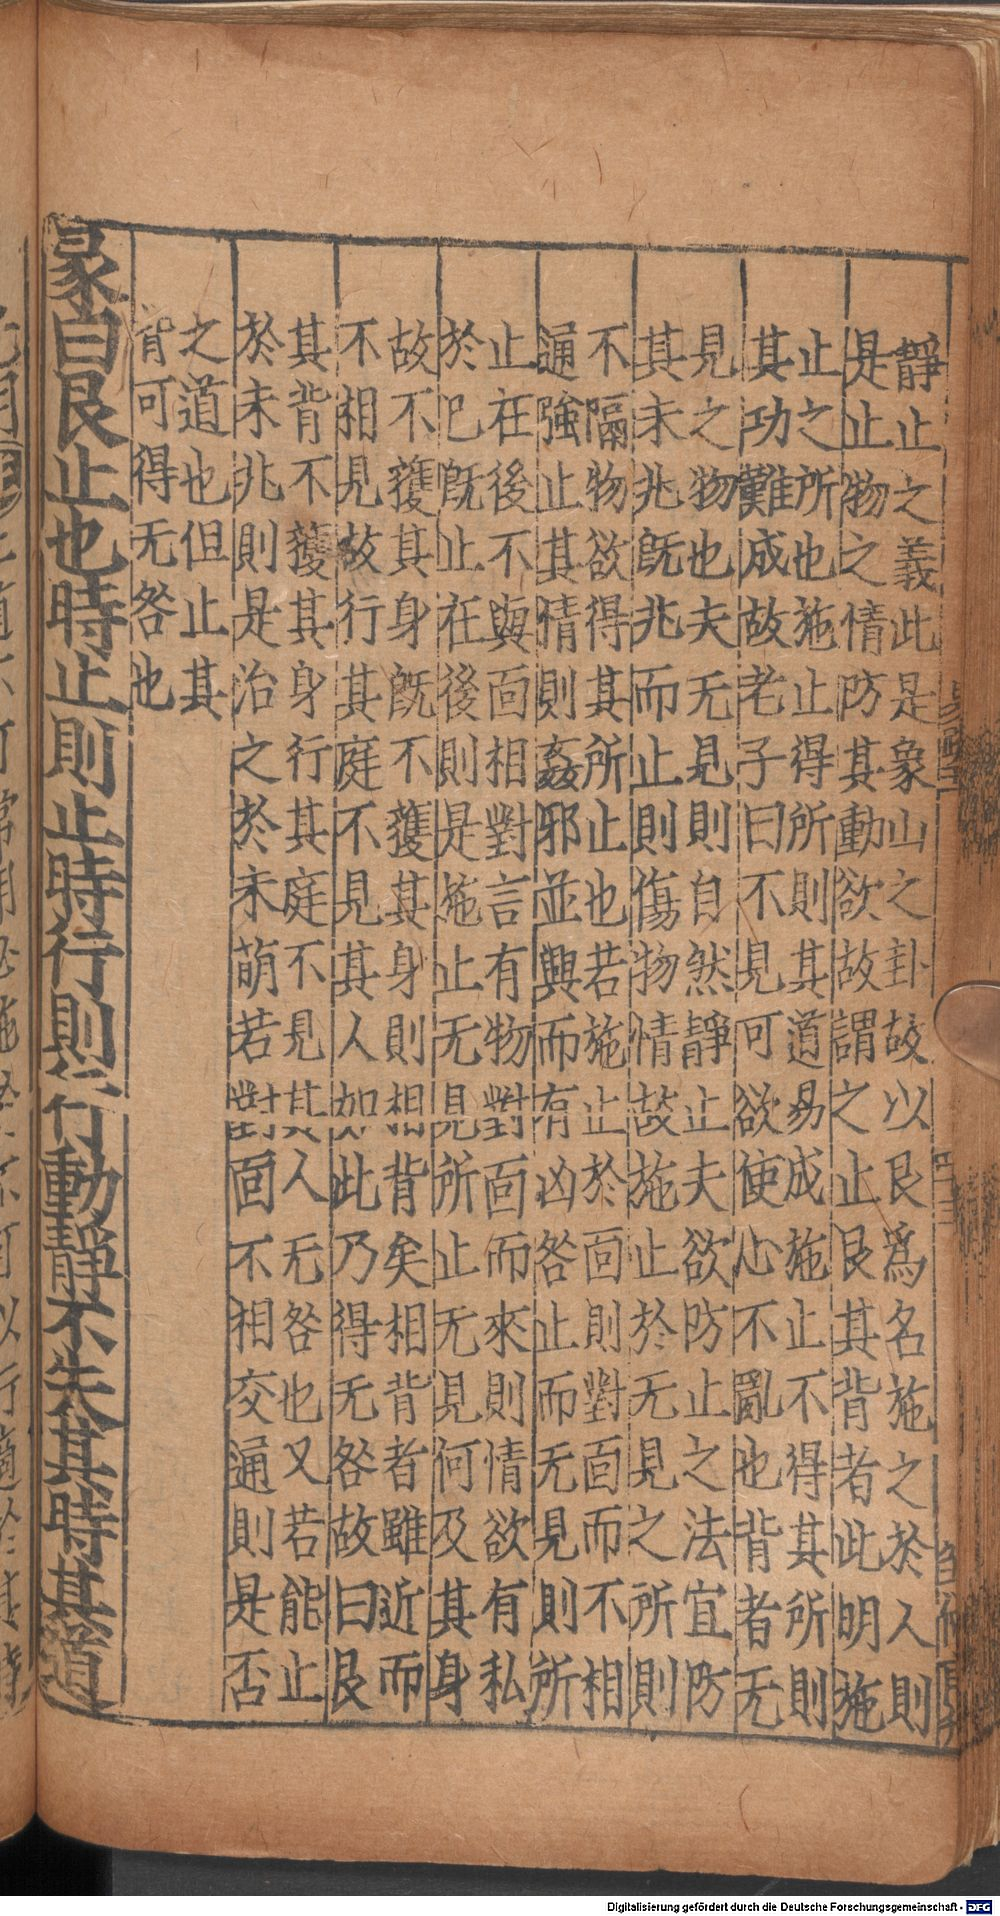 靜止之義此是象山之卦故以艮爲名施之於人則
是止物之情防其動欲故謂之止艮其背者此明施
止之所也施止得所則其道易成施止不得其所則
其功難成故老子曰不見可欲使心不亂也背者无
見之物也夫无見則自然靜止夫欲防止之法宜防
其未兆旣兆而止則傷物情故施止於无見之所則
不隔物欲得其所止也若施止於面則對面而不相
通強止其情則姦邪並興而有凶咎止而无見則所
止在後不與面相對言有物對面而來則情欲有私
於己旣止在後則是施止无見所止无見何及其身
故不獲其身旣不獲其身則相背矣相背者雖近而
不相見故行其庭不見其人如此乃得无咎故曰艮
其背不獲其身行其庭不見其人无咎也又若能止
於未兆則是治之於未萌若對面不相交通則是否
之道也但止其
背可得无咎也
彖曰艮止也時止則止時行則行動靜不失其時其道
Digitalisierung gefördert durch die Deutsche Forschungsgemeinschaft - DFG